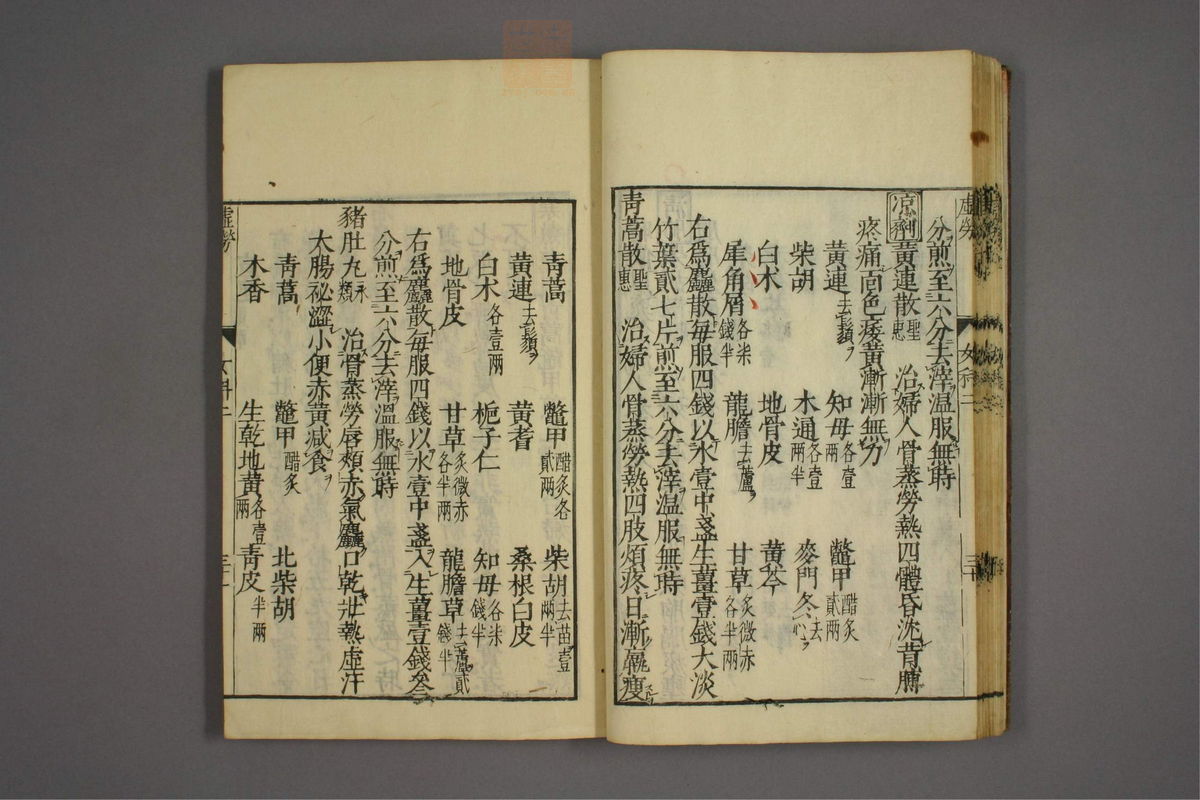 分煎至六分去滓温服無時
凉劑 黃連散 聖惠 治婦人骨蒸勞熱四體昏沈背膊
疼痛面色痿黃漸漸無力
黃連 去鬚 知母 各壹兩 鼈甲 醋炙貳兩
柴胡 木通 各壹兩半 麥門冬 去心
白朮 地骨皮 黃芩
犀角屑 各柒錢半 龍膽 去蘆 甘草 炙微赤各半兩
右爲麤散每服四錢以水壹中盞生薑壹錢大淡
竹葉貳七片煎至六分去滓温服無時
靑蒿散 聖惠 治婦人骨蒸勞熱四肢煩疼日漸羸瘦
靑蒿 鼈甲 醋炙各貳兩 柴胡 去苗壹兩半
黃連 去鬚 黃耆 桑根白皮
白朮 各壹兩 梔子仁 知母 各柒錢半
地骨皮 甘草 炙微赤各半兩 龍膽草 去蘆貳錢半
右爲麤散每服四錢以水壹中盞入生薑壹錢叄
分煎至六分去滓溫服無時
豬肚丸 永類 治骨蒸勞唇頰赤氣麤口乾壯熱虛汗
大腸祕澀小便赤黃減食
靑蒿 鼈甲 醋炙 北柴胡
木香 生乾地黃 各壹兩 靑皮 半兩
虛勞
女科二
三十
虛勞
女科二